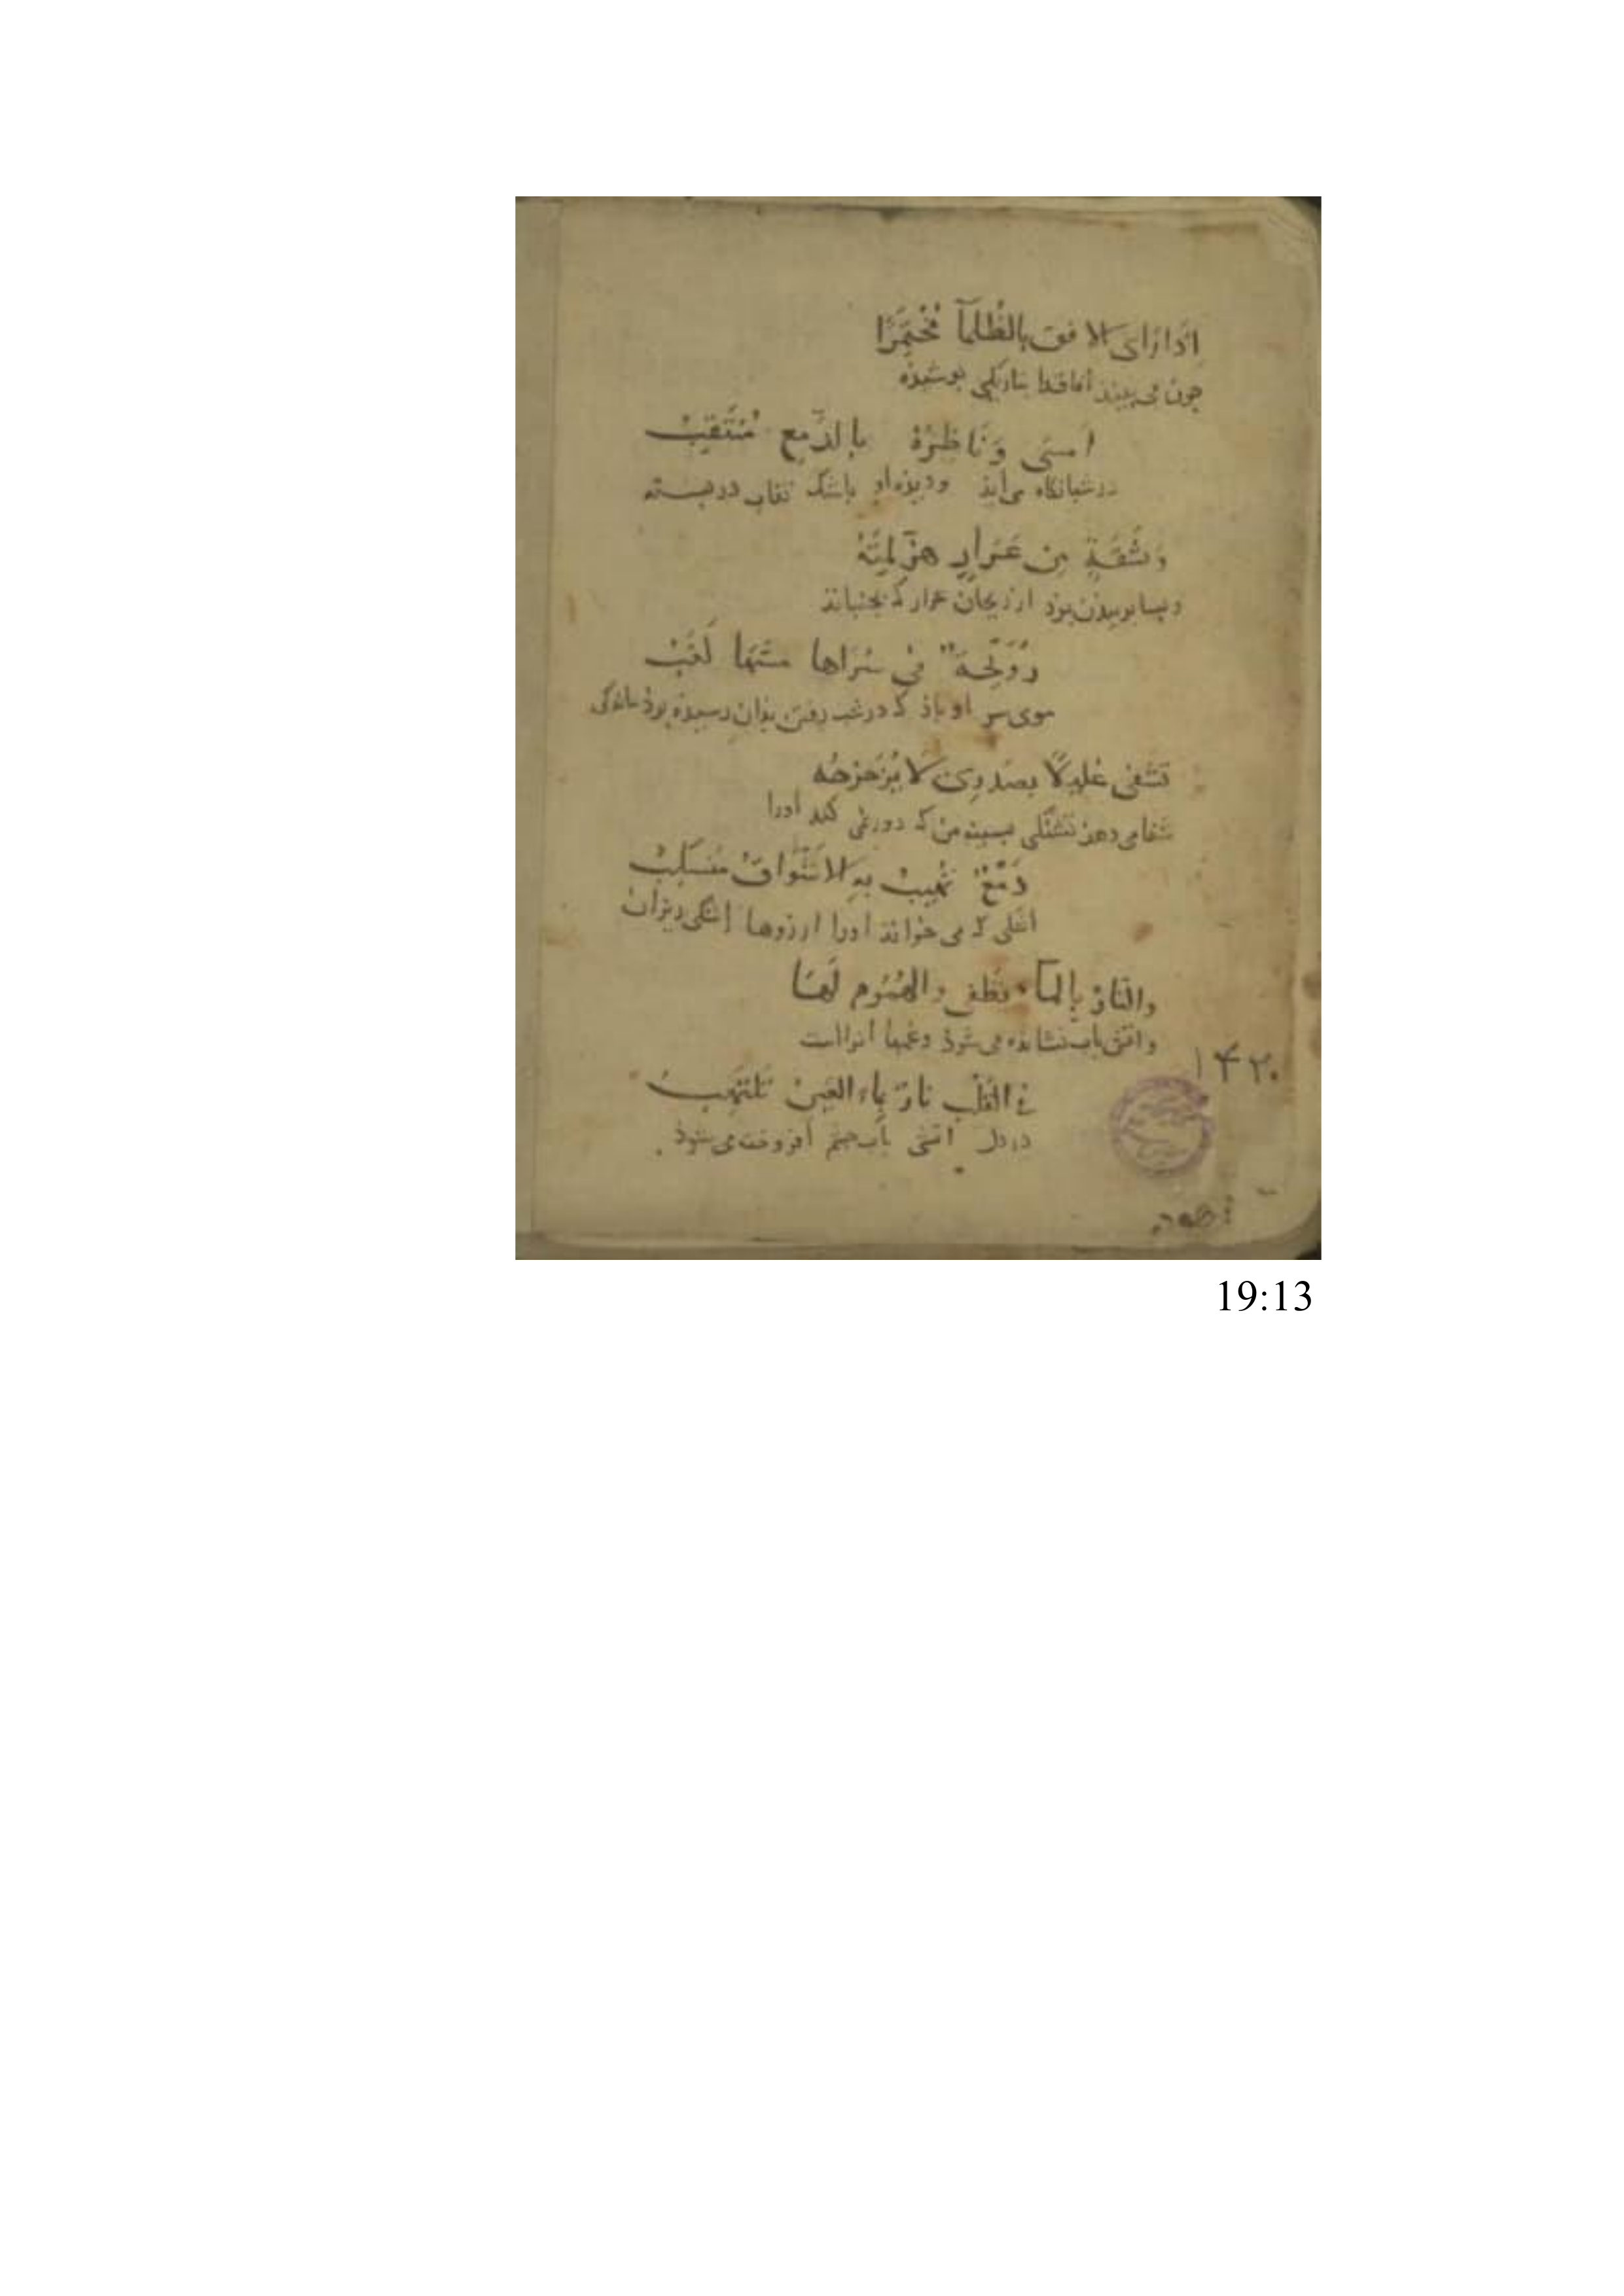 اِذا رَاَى الافق بالظُّلمآ مُختَمِرًا
جون می بیند آفاقرا بتاریکی بوشیذه
اَمسَی وَنَاظِرُهُ بالدَّمع مُنتَقِبُ
در شبانکاه می آید و دیذه او باشک نقاب دربسته
وَنَشقَةٍ مِن عَرارٍ هزَّ لِمَّتَهُ
وبسا بوییدن بوذ از ریحان عرار کی بجنباند
رُوَيحَةٌ فی سُراها مسَّها لَغَبُ
موی سر او باذ کی در شب رفتن بذان رسیذه بوذ ماندکی
تشفی غلیلًا بصَدری لا يُزَحزحُه
شفا می دهذ تشنکی بسینه من کی دور نمی کند اورا
دَمعٌ تُهيبُ بهِ الاشواقُ مُنسَكِبُ
اشکی کی می خواند اورا ارزوها اشکی ریزان
والنّارُ بالمآء تطفی والهُمُوم لَهَا
واتش بآب نشانده می شوذ وغمها انراست
فی القَلب نارٌ بماء العَین تَلتَهِبُ
در دل اتشی بآب جشم افروخته می شوذ
۱۴۲۰
19:13